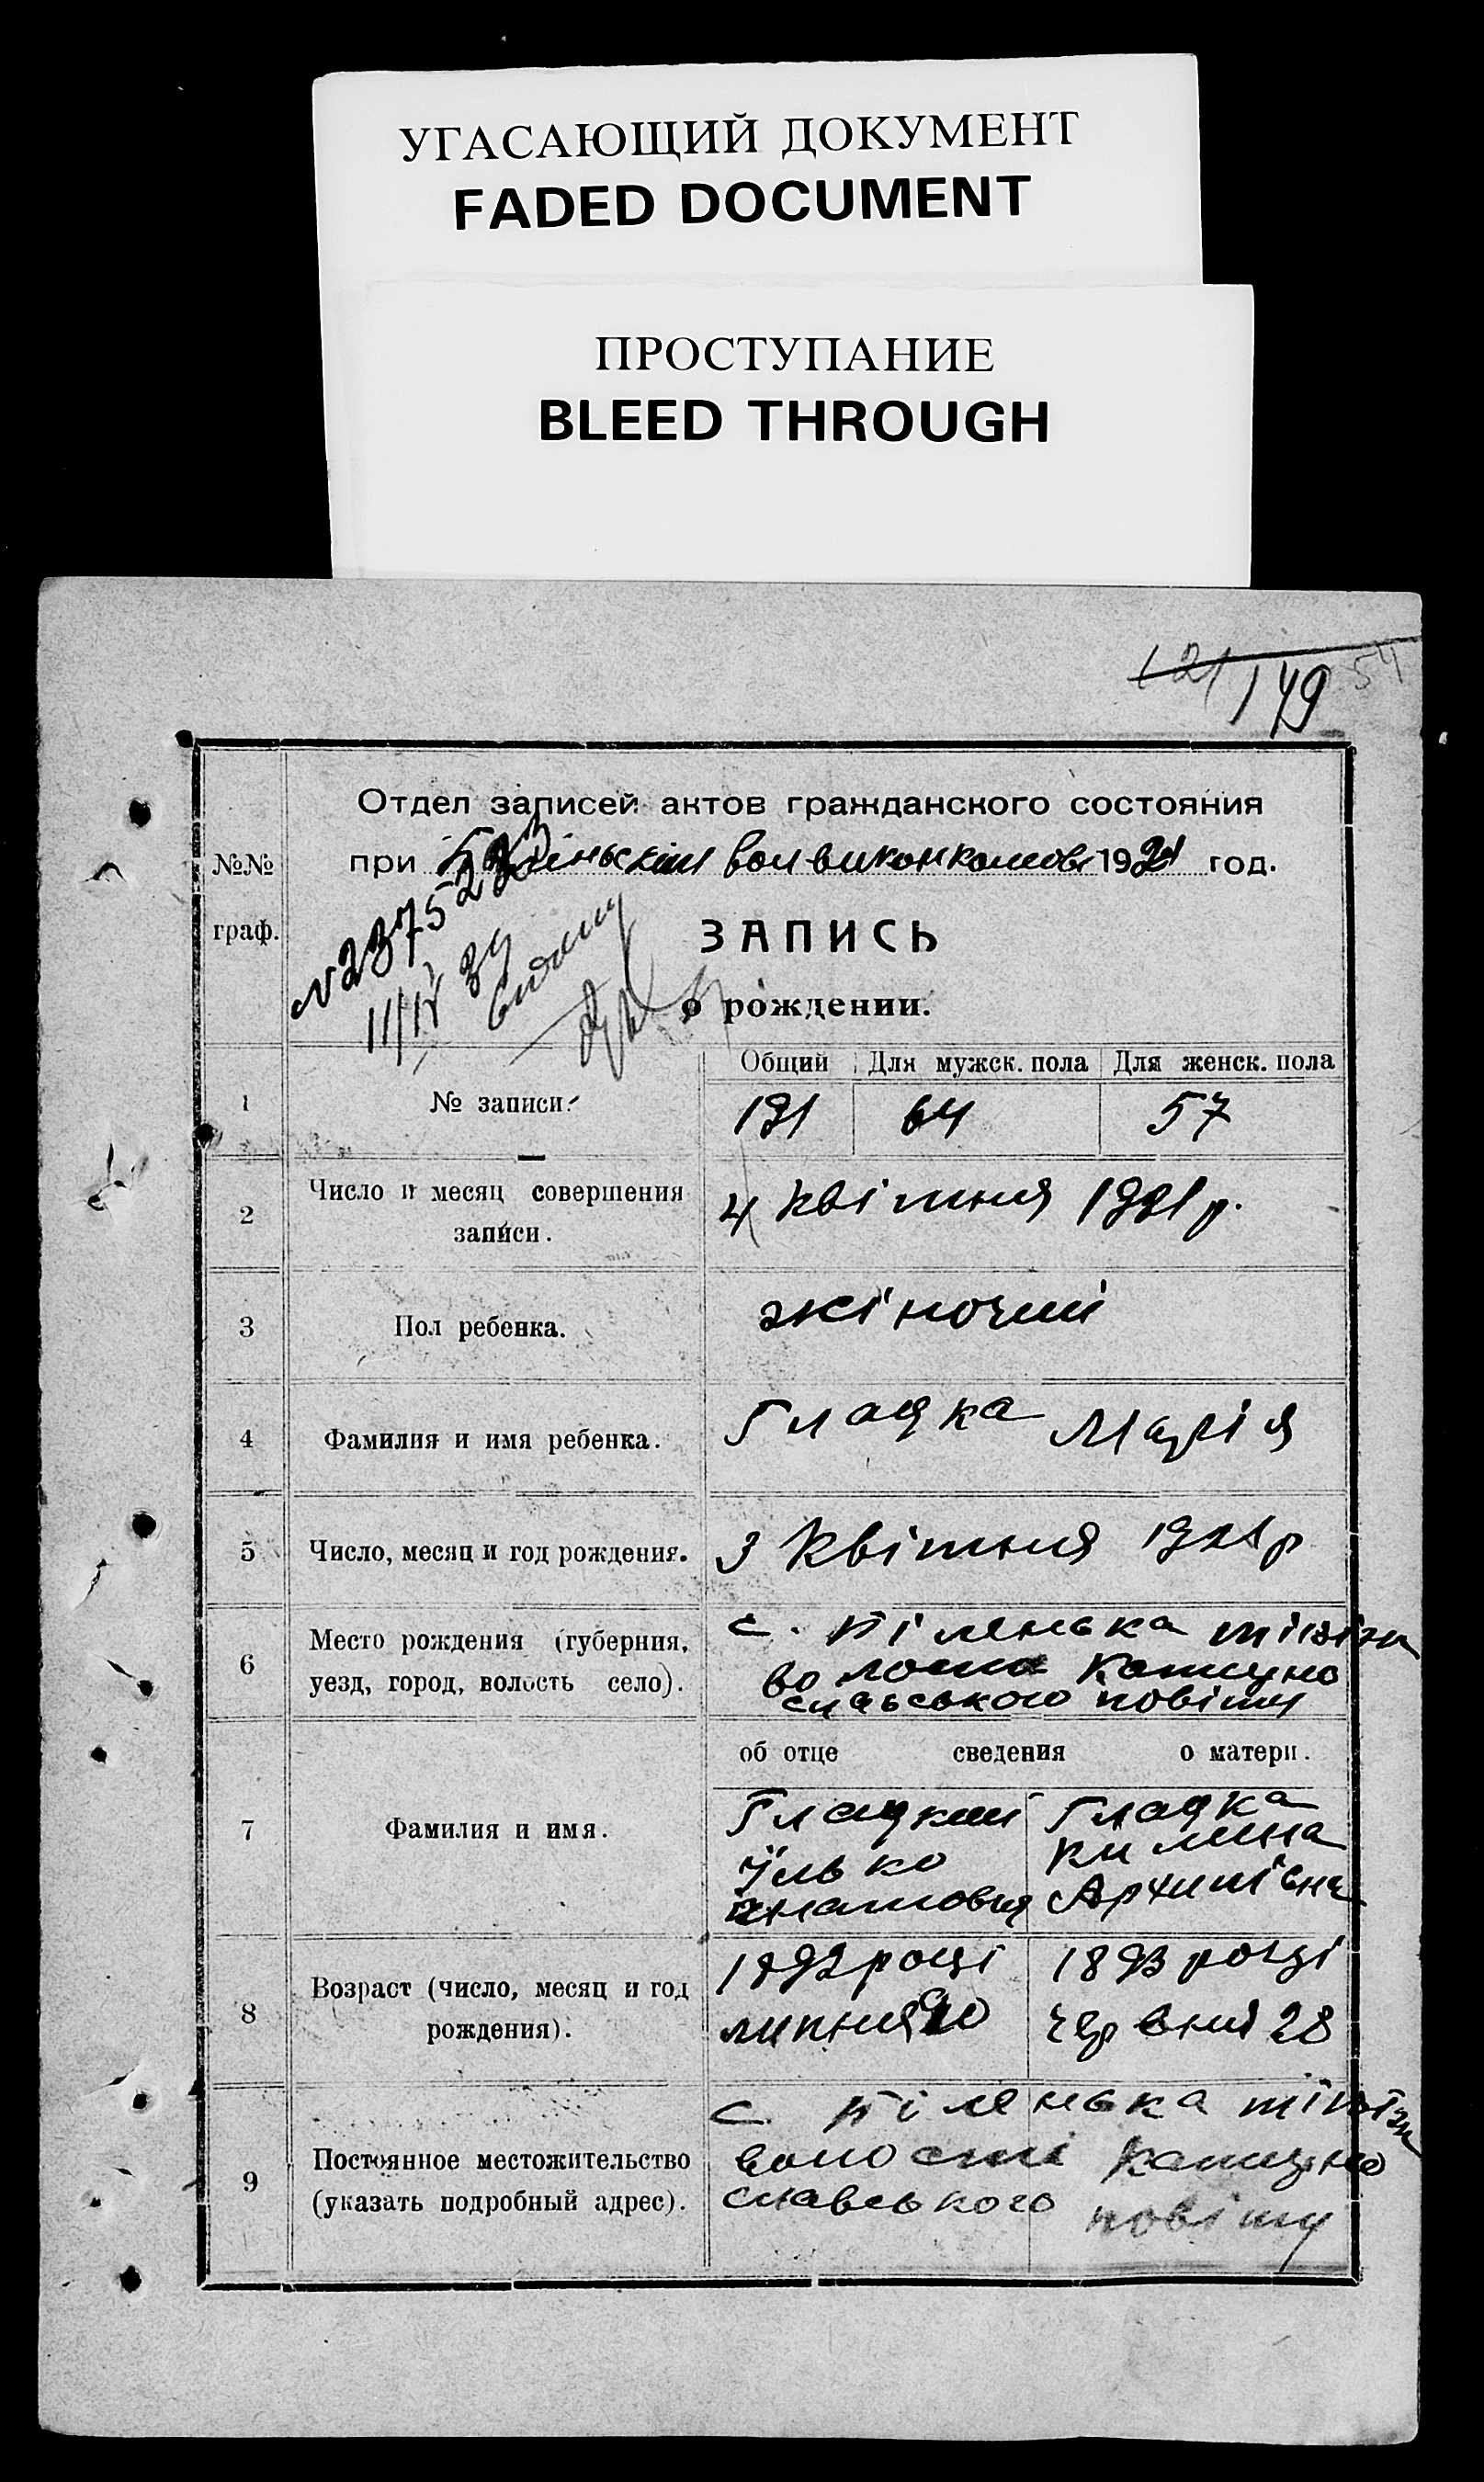 УГАСАЮЩИЙ ДОКУМЕНТ
FADED DOCUMENT
ПРОСТУПАНИЕ
BLEED THROUGH
121 149 54
Отдел записей актов гражданского состояния
№№ граф.
при волвиконкомові 1921 год.
ЗАПИСЬ
о рождении.
Общий Для мужск. пола Для женск. пола
1 № записи. 121 64 57
2 Число и месяц совершения записи. 4 квітня 1921 р.
3 Пол ребенка. жіночий
4 Фамилия и имя ребенка. Гладка Марія
5 Число, месяц и год рождения. 3 квітня 1921 р
6 Место рождения (губерния, с.
уезд, город, волость село). Катерино
славського повіту
об отце сведения о матери.
7 Фамилия и имя. Гладкий Гладка
Їлько Килина
Архипівна
8 Возраст (число, месяц и год 1892 році 1893 році
рождения). липня 20 червня 28
9 с.
Постоянное местожительство волості Катерино
(указать подробный адрес). славського повіту